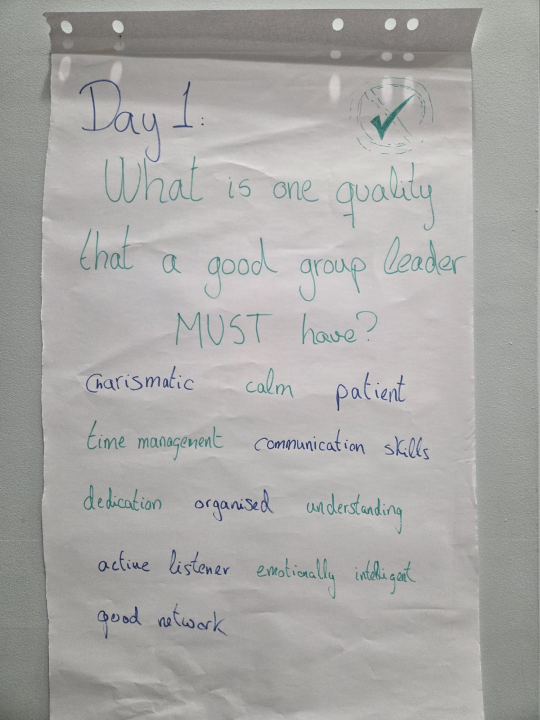 Day 1:
What is one quality
that a good group leader
MUST have?
charismatic calm patient
time management communication skills
dedication organised understanding
active listener emotionally intelligent
good network